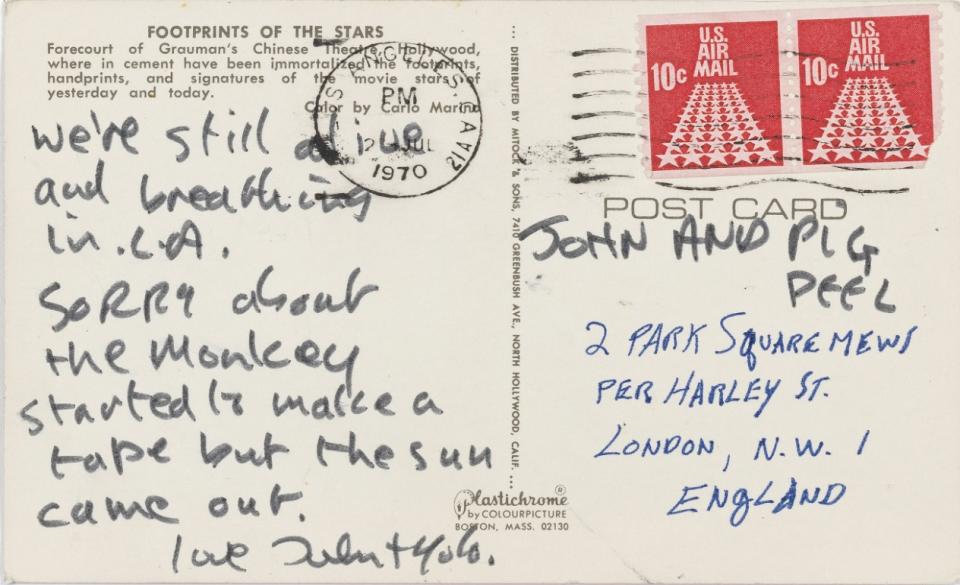 FOOTPRINTS OF THE STARS
Forecourt of Grauman's Chinese Theatre, Hollywood,
where in cement have been immortalized the footprints,
handprints, and signatures of the movie stars of
yesterday and today.
Color by Carlo Marino
we're still alive
and breathing
in L.A.
Sorry about
the monkey
started to make a
tape but the sun
came out.
love John + Yoko.
LOS ANGELES, CA
PM
JUL
1970
... DISTRIBUTED BY MITOCK & SONS, 7410 GREENBUSH AVE., NORTH HOLLYWOOD, CALIF. ...
Plastichrome ®
by COLOURPICTURE
BOSTON, MASS. 02130
U.S.
AIR
MAIL
10c
U.S.
AIR
MAIL
10c
POST CARD
JOHN AND PIG
PEEL
2 PARK SQUARE MEWS
PER HARLEY ST.
LONDON, N.W. 1
ENGLAND